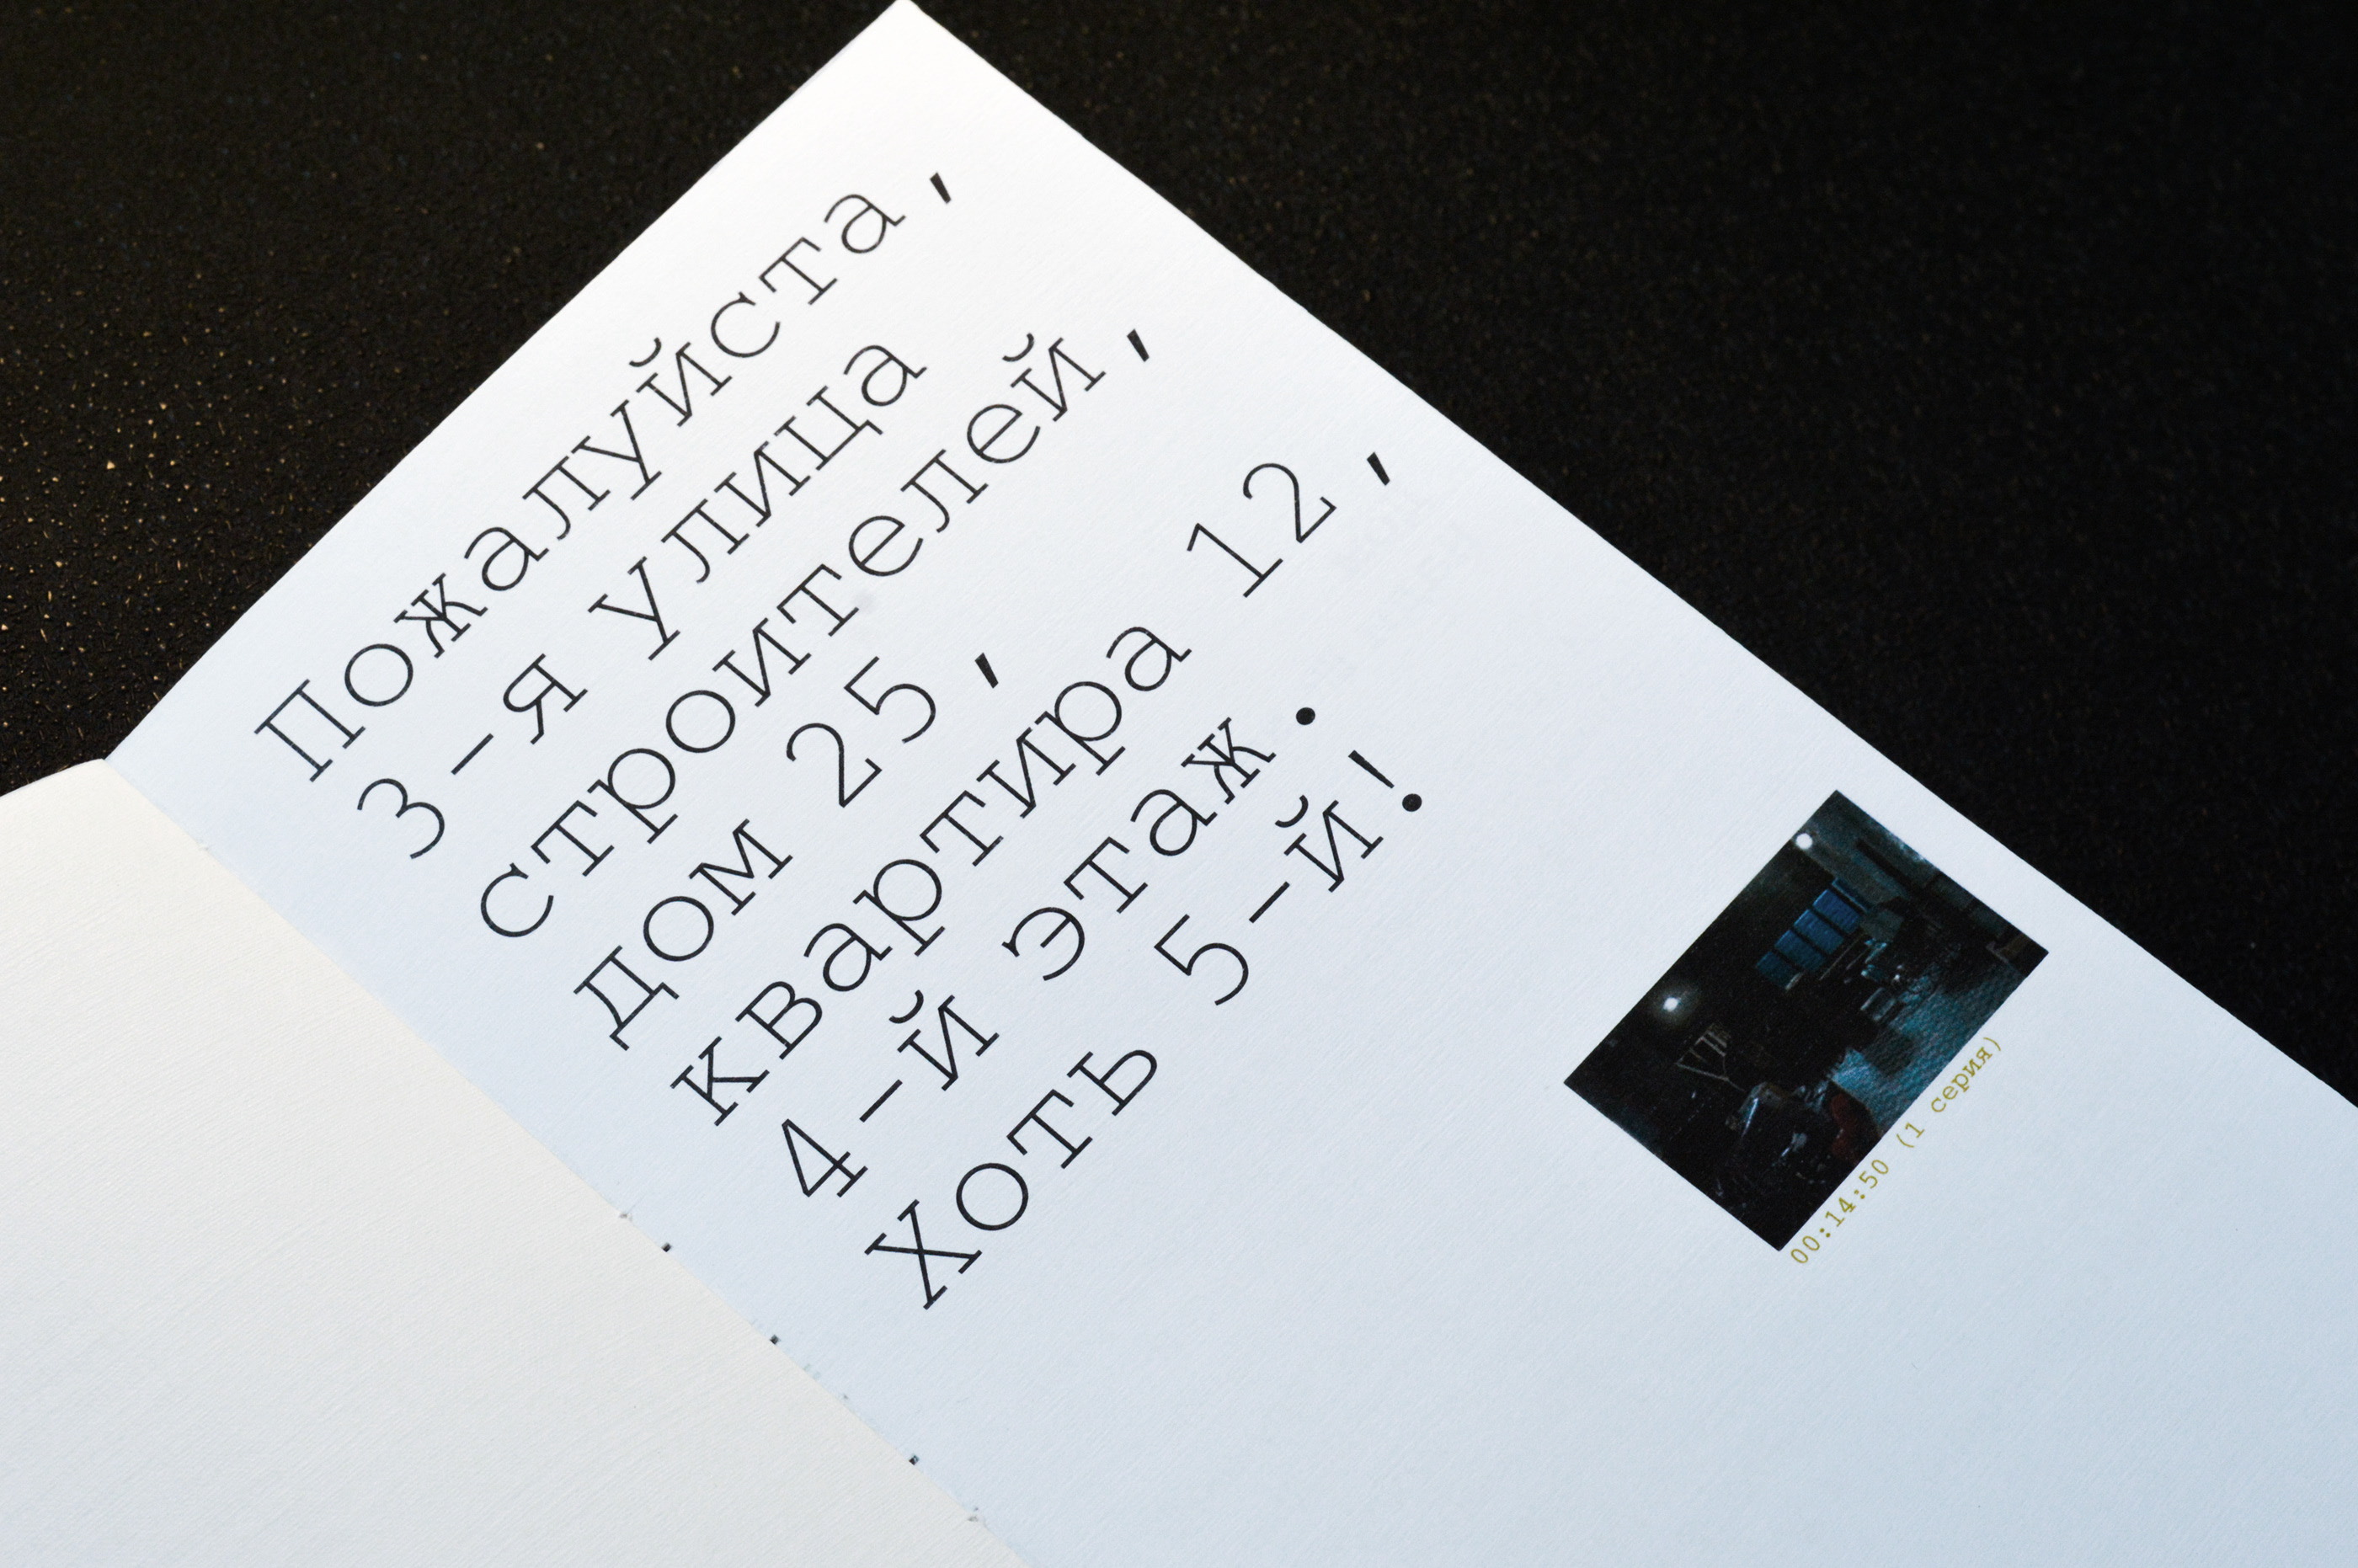 Пожалуйста,
3-я улица
строителей,
дом 25,
квартира 12,
4-й этаж.
Хоть 5-й!
00:14:50 (1 серия)